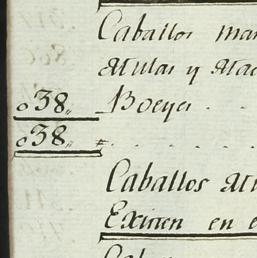 Caballos man
Mulas y Mac
038,, Boeyes . .
038,, = . . . .
Caballos Mu
Existen en e